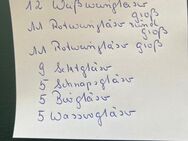 12 Weißweingläser
groß
11 Rotweingläser rund
groß
11 Rotweingläser groß
9 Sektgläser
5 Schnapsgläser
5 Biergläser
5 Wassergläser